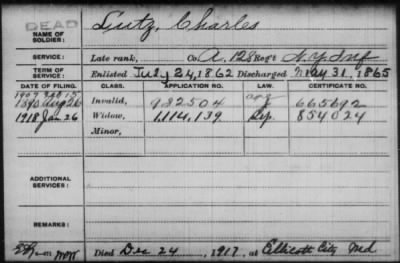 DEAD
NAME OF SOLDIER: Lutz, Charles
SERVICE: Late rank, Co. A, 128 Reg't N.Y. Inf
TERM OF SERVICE: Enlisted July 24, 1862 Discharged May 31, 1865
DATE OF FILING. CLASS. APPLICATION NO. LAW. CERTIFICATE NO.
1907 Feb 15
1890 Aug 26 Invalid, 932504 665692
1918 Jan 26 Widow, 1,114,139 854024
Minor,
ADDITIONAL SERVICES:
REMARKS:
Died Dec 24, 1917, at Ellicott City Md